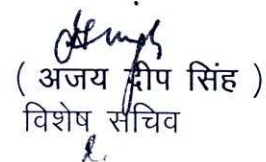 ( अजय दीप सिंह )
विशेष सचिव